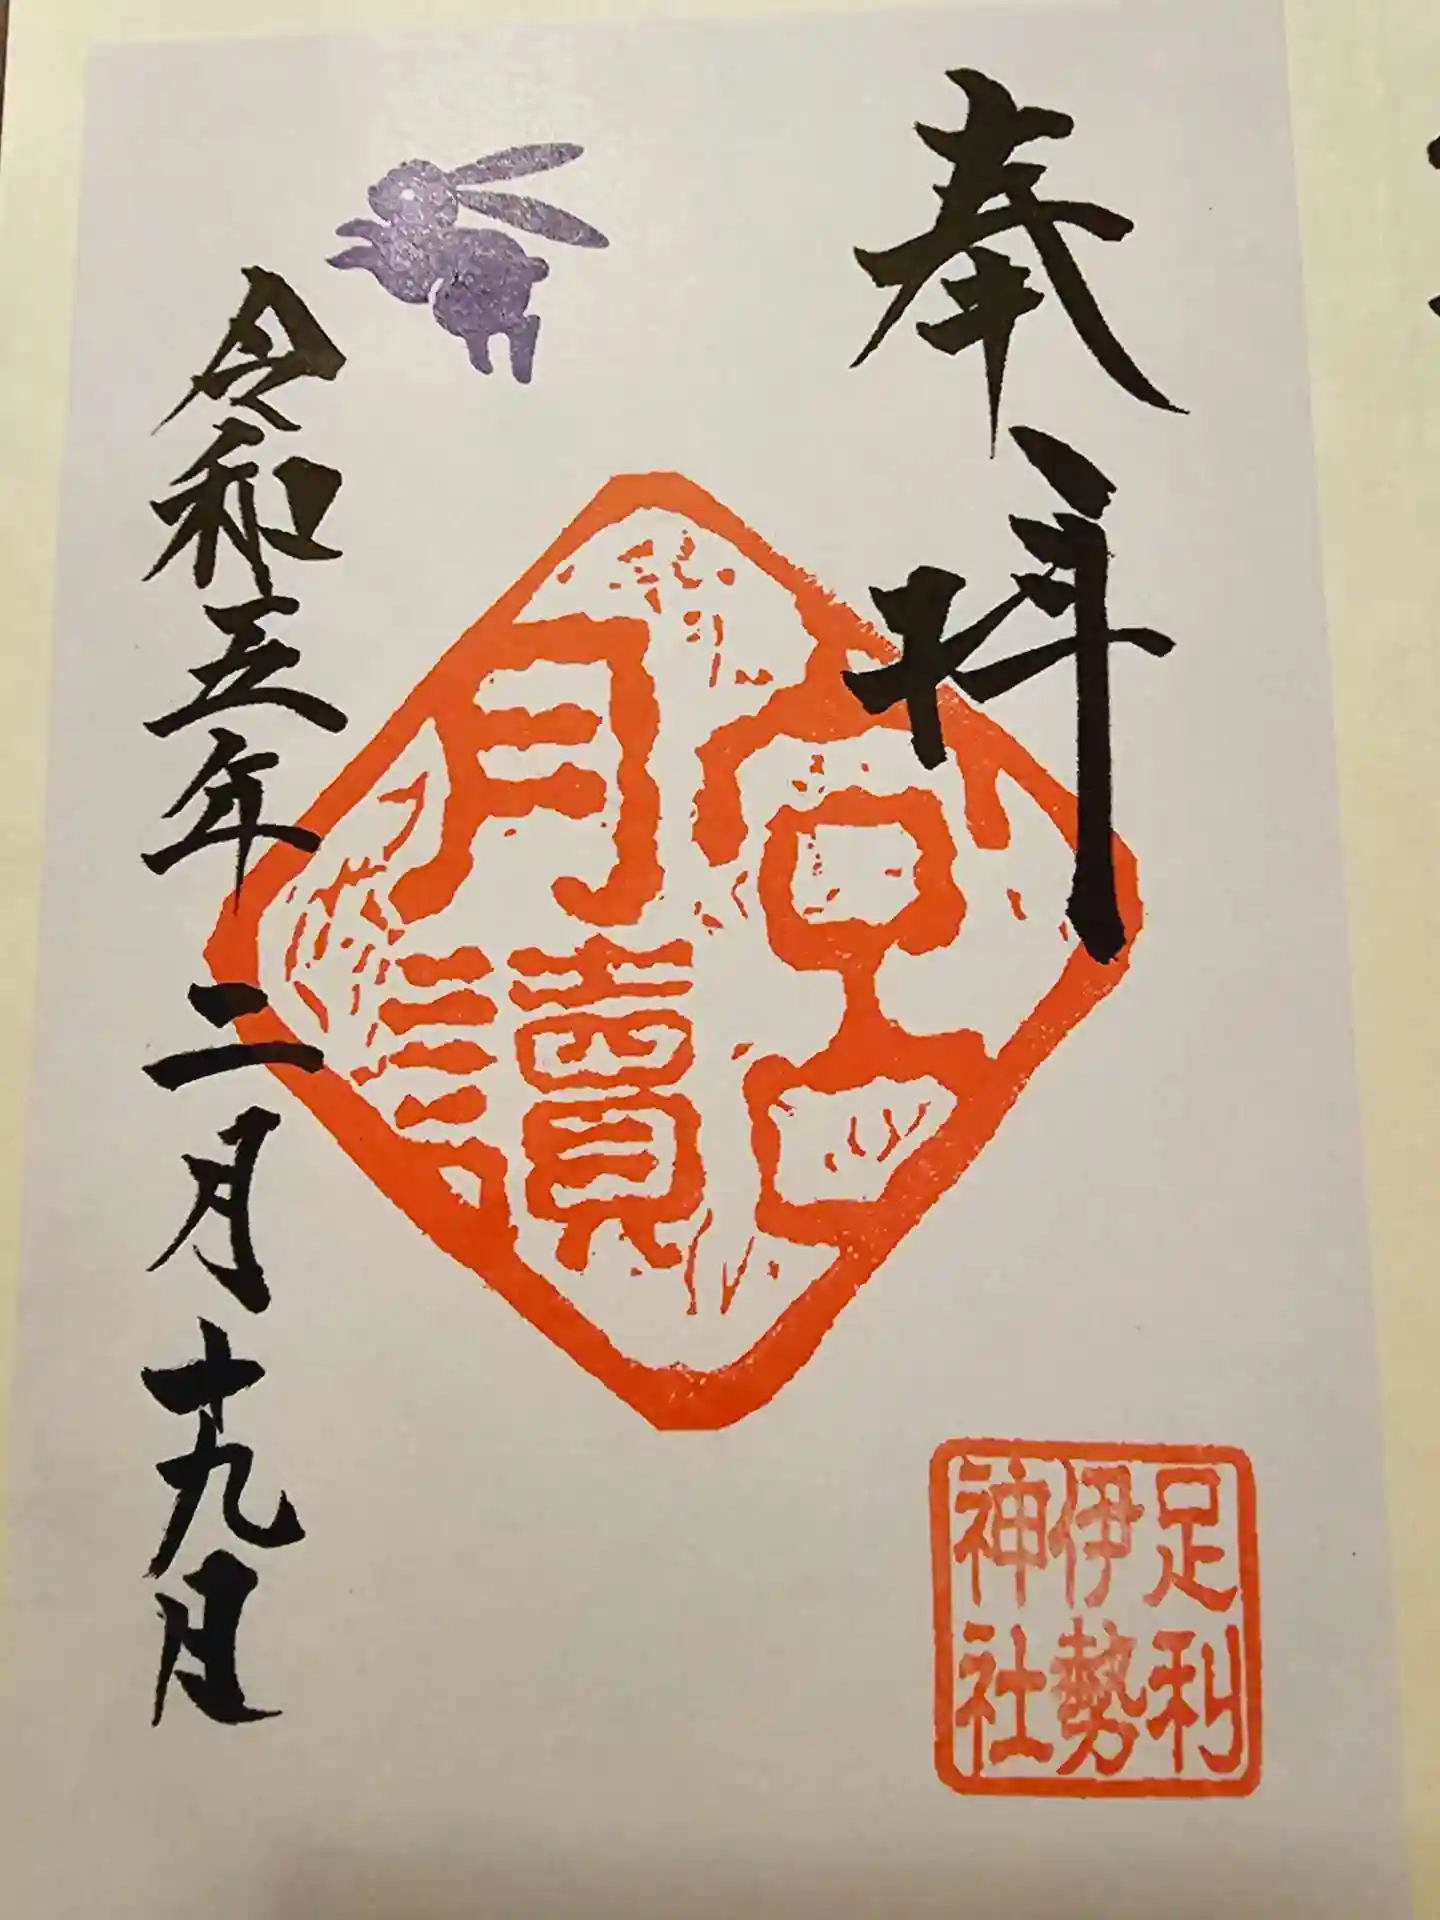 奉拝
月讀宮
足利
伊勢
神社
令和五年二月十九日